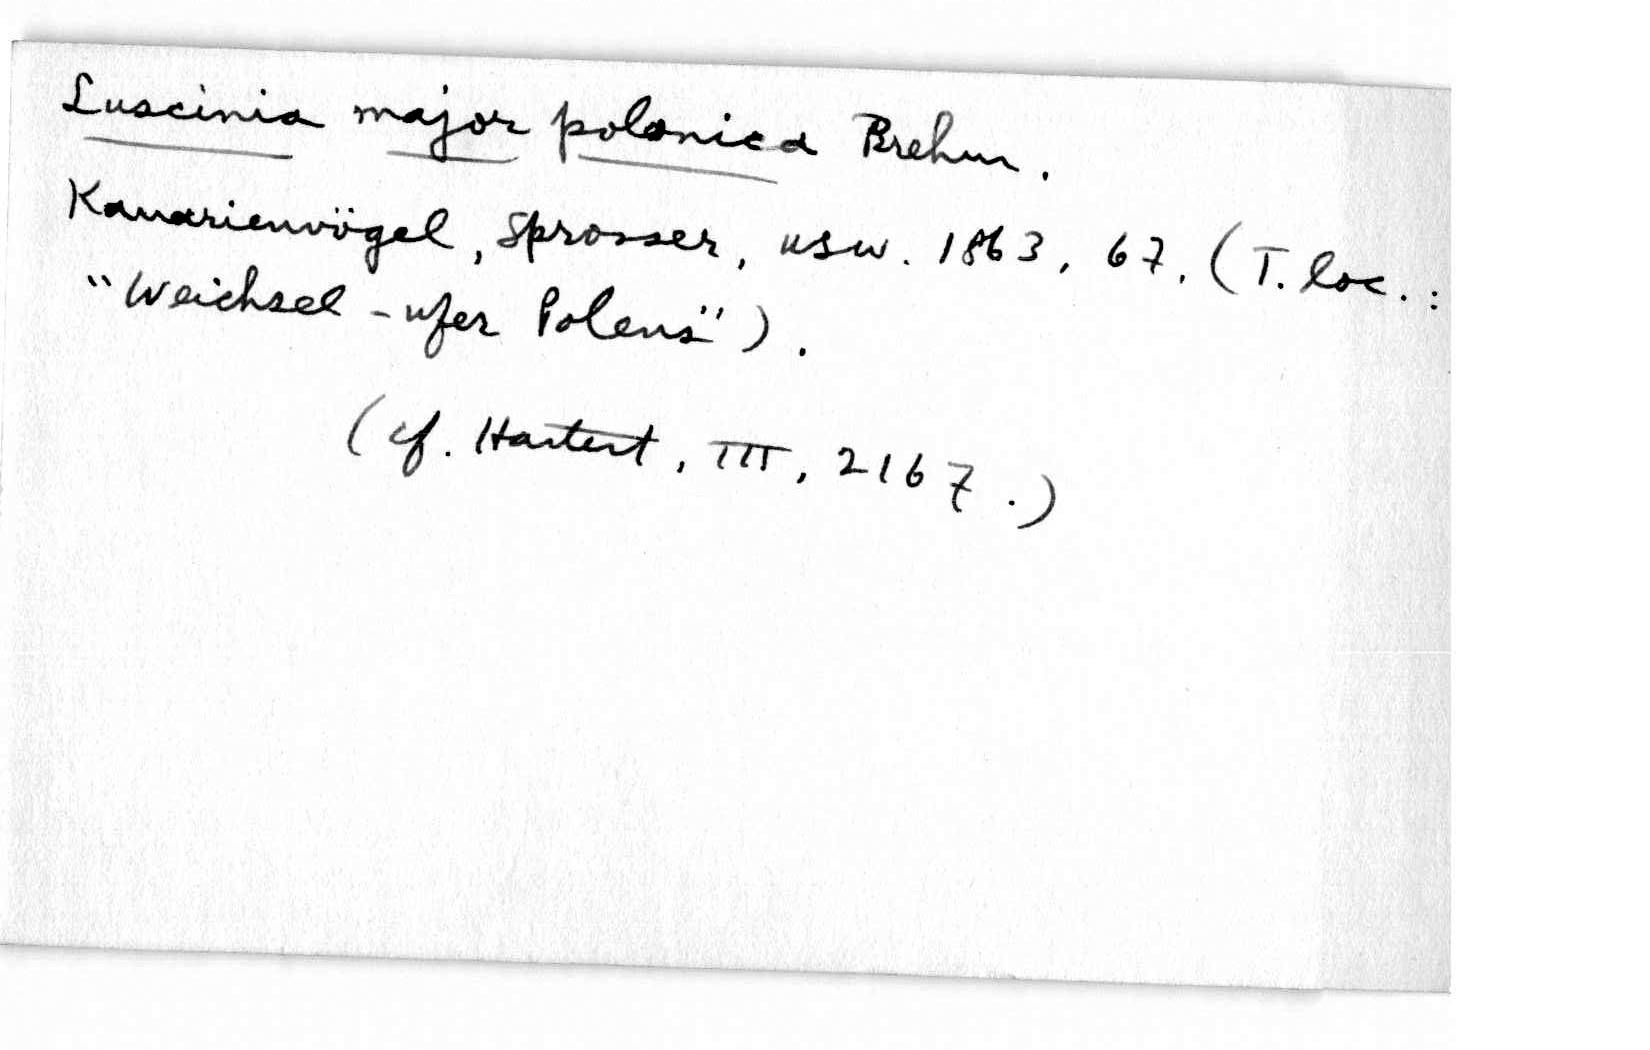 Luscinia major polonica Brehm.
Kanarienvögel, Sprosser, usw. 1863, 67. (T. loc.:
"Weichsel-ufer Polens").
(cf. Hartert, III, 2167.)